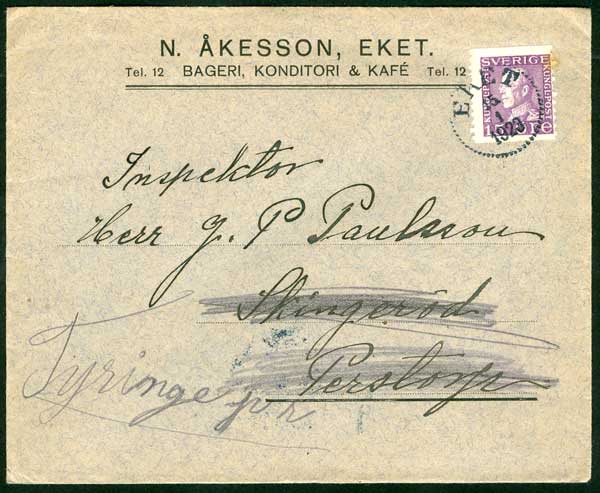 N. ÅKESSON, EKET.
Tel. 12 BAGERI, KONDITORI & KAFÉ Tel. 12
SVERIGE
EKET
1
1923
Inspektor
Herr J. P Paulsson
Skingeröd
Perstorp
Tyringe